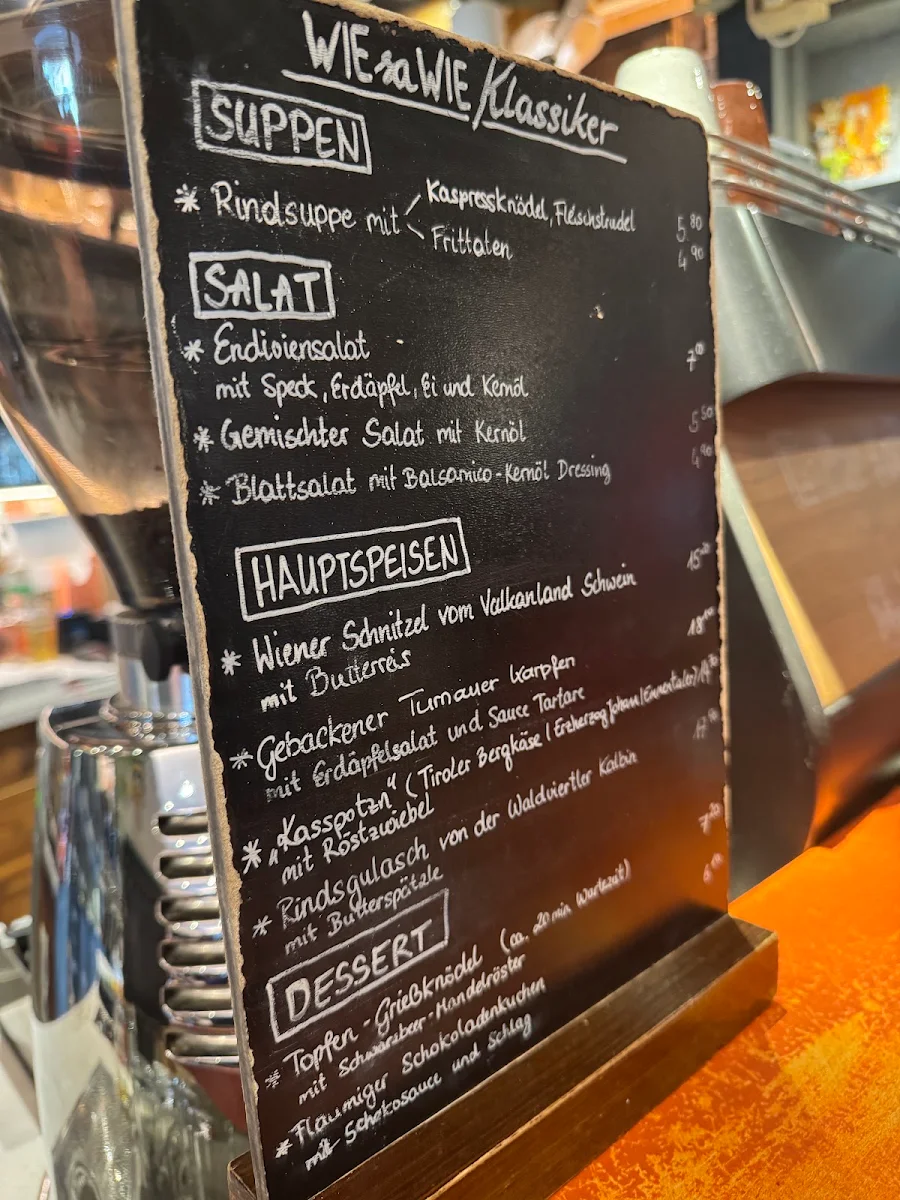 WIE za WIE / Klassiker
SUPPEN
* Rindsuppe mit Kaspressknödel, Fleischstrudel 5 80
Frittaten 4 90
SALAT
* Endiviensalat 7 00
mit Speck, Erdäpfel, Ei und Kernöl
* Gemischter Salat mit Kernöl 5 50
* Blattsalat mit Balsamico-Kernöl Dressing 4 90
HAUPTSPEISEN
* Wiener Schnitzel vom Vulkanland Schwein
mit Butterreis
* Gebackener Turnauer Karpfen
mit Erdäpfelsalat und Sauce Tartare
* „Kasspotzn“ (Tiroler Bergkäse / Erzherzog Johann / Emmentaler)
mit Röstzwiebel
* Rindsgulasch von der Waldviertler Kalbin
mit Butterspätzle
DESSERT
* Topfen-Grießknödel (ca. 20 min Wartezeit)
mit Schwarzbeer-Mandelröster
* Flaumiger Schokoladenkuchen
mit Schokosauce und Schlag